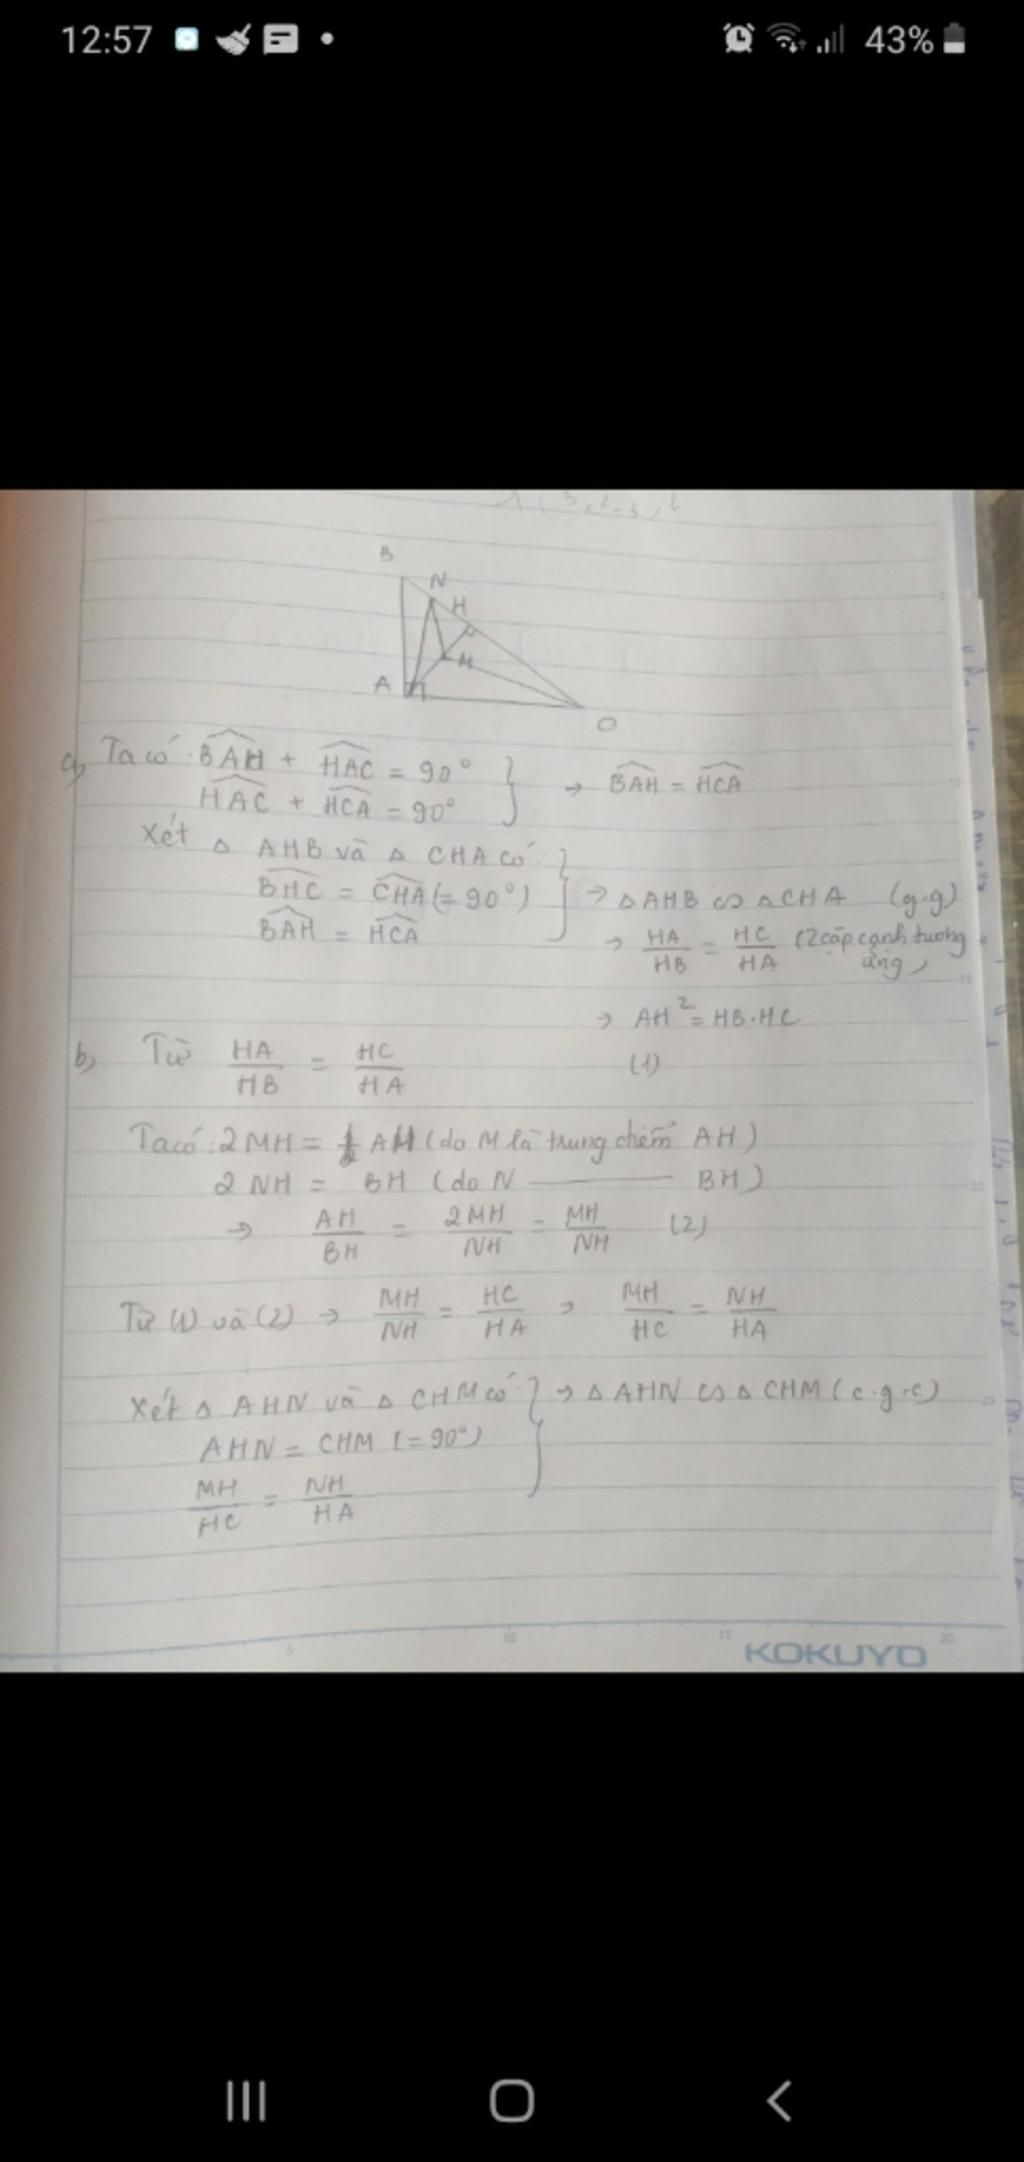 12:57 43%
B
N
H
M
A
C
a, Ta có: BAH + HAC = 90° } → BAH = HCA
HAC + HCA = 90°
Xét △ AHB và △ CHA có: }
BHC = CHA (= 90°) → △AHB ∽ △CHA (g.g)
BAH = HCA
→ HA/HB = HC/HA (2 cặp cạnh tương ứng)
→ AH² = HB.HC
b, Từ HA/HB = HC/HA (1)
Ta có: 2MH = AH (do M là trung điểm AH)
2 NH = BH (do N ——— BH)
→ AH/BH = 2MH/NH = MH/NH (2)
Từ (1) và (2) → MH/NH = HC/HA → MH/HC = NH/HA
Xét △ AHN và △ CHM có } → △ AHN ∽ △ CHM (c.g.c)
AHN = CHM (= 90°)
MH/HC = NH/HA
5 10 15 20
KOKUYO